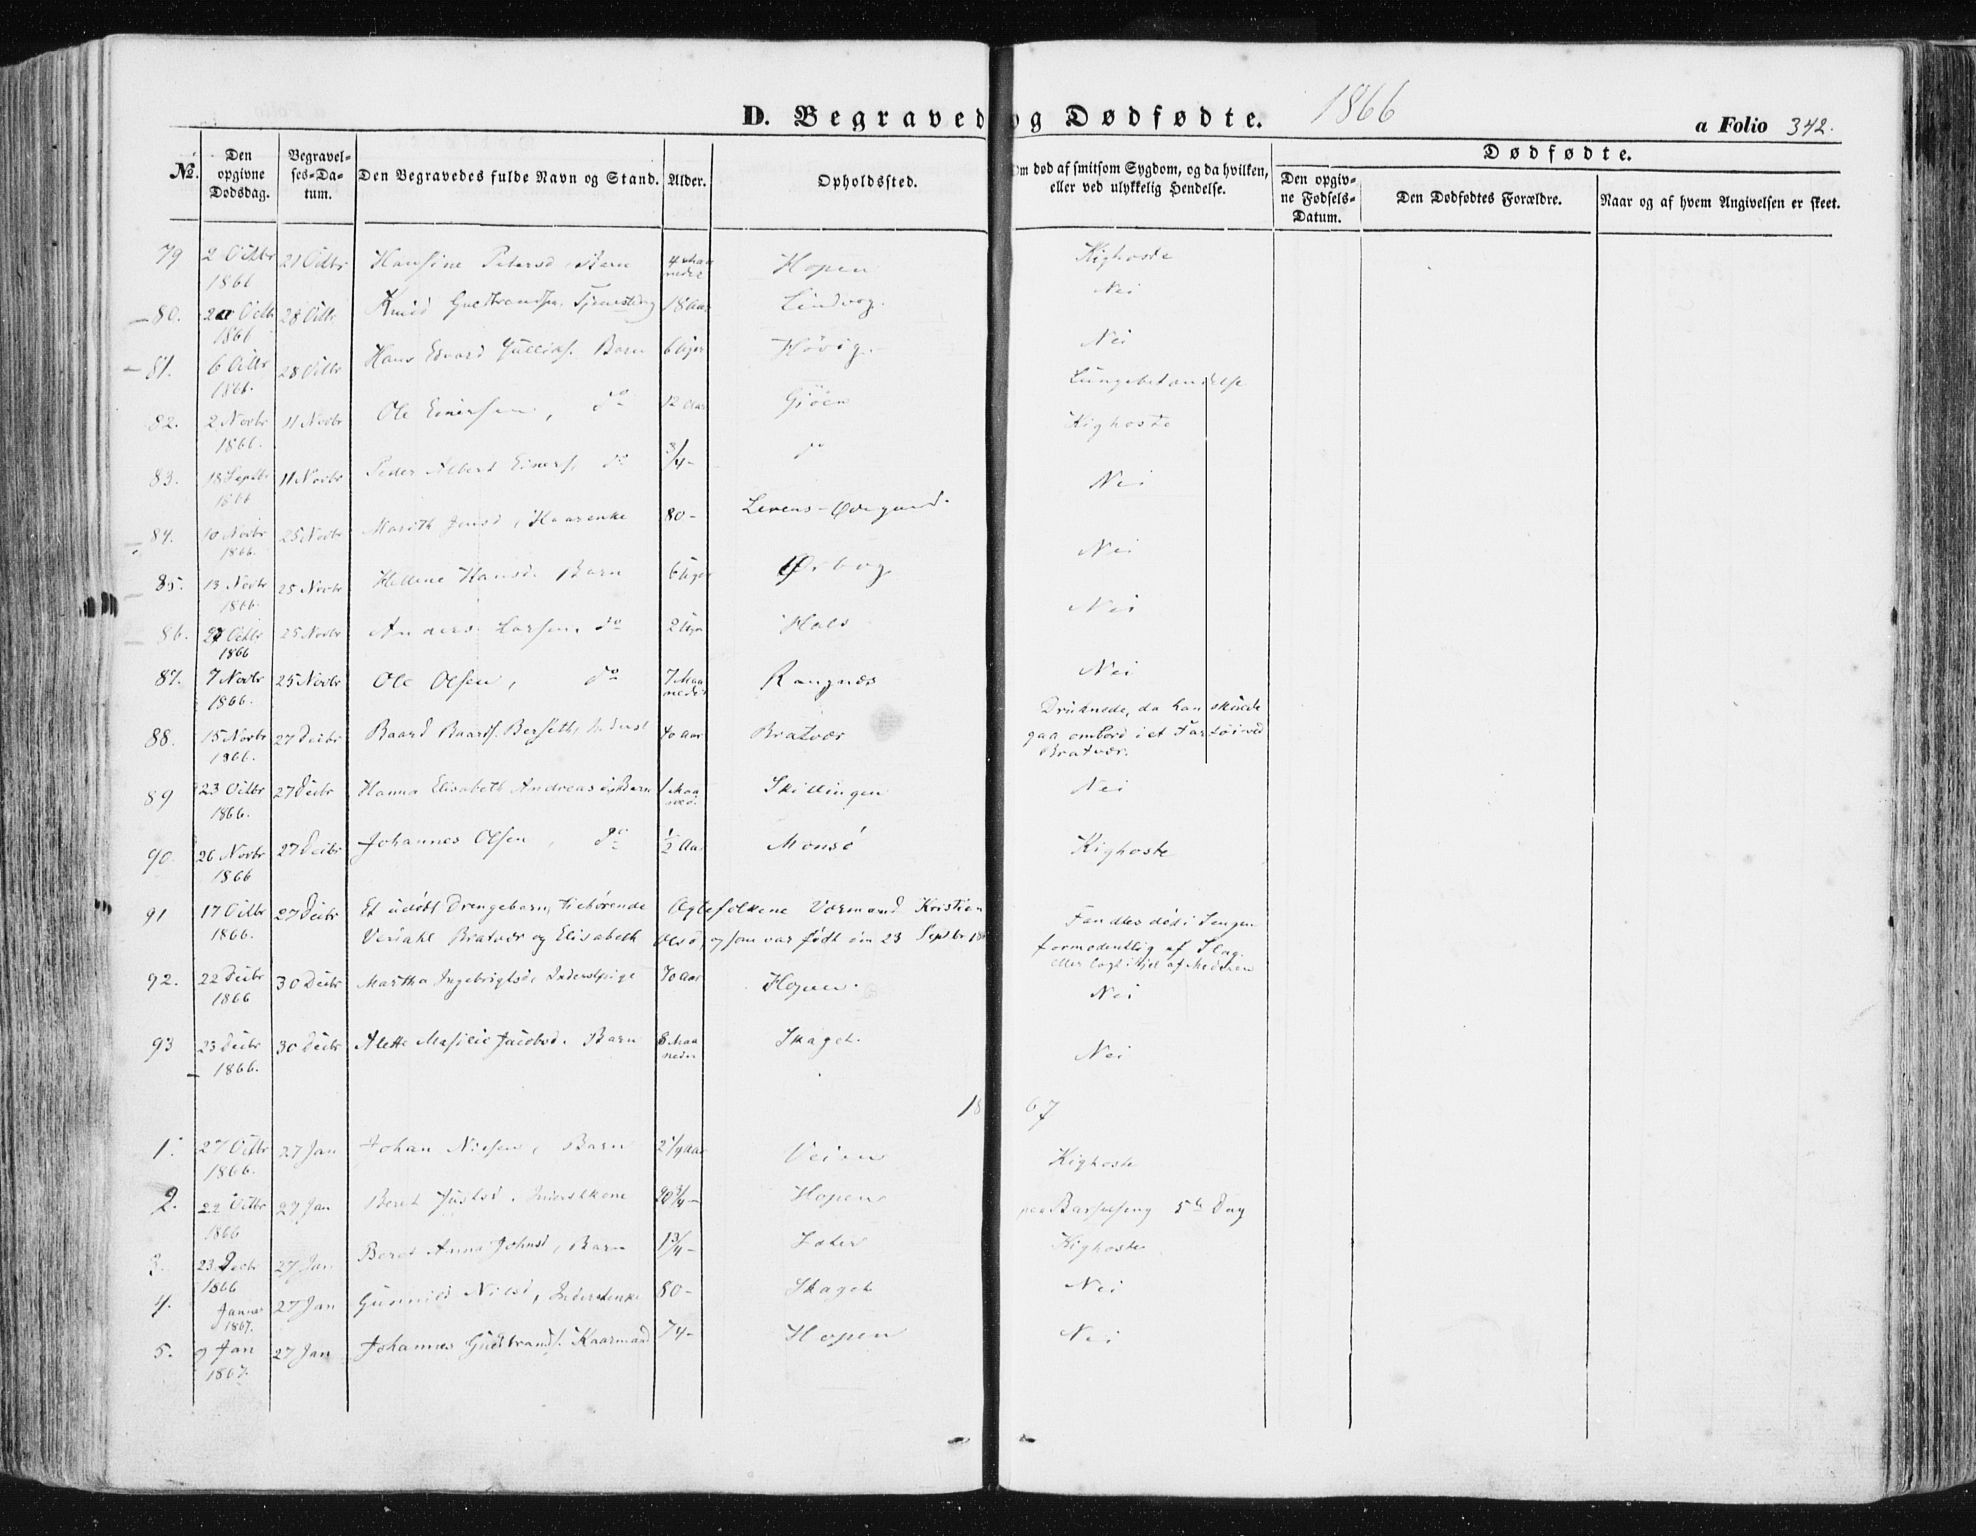 D. Begravede og Dødfødte. 1866
a Folio 342.
No. Den opgivne Dødsdag. Begravelses-Datum. Den Begravedes fulde Navn og Stand. Alder. Opholdssted. Om død af smitsom Sygdom, og da hvilken, eller ved ulykkelig Hendelse. Dødfødte.
Den opgivne Fødsels-Datum. Den Dødfødtes Forældre. Naar og af hvem Angivelsen er skeet.
79 2 Octbr 1866 21 Octbr Hansine Petersd, Barn 4 Maaneder Hopen Kighoste
80. Octbr 1866 28 Octbr Knud 18 Aar Lindvog. Nei
81. 6 Octbr 1866. 28 Octbr Hans Edvard Barn 6 Uger Høvig. Nei
82. 2 Novbr 1866. 11 Novbr Ole Einersen, do 12 Aar Gjøen Lungebetændelse
83. 18 Septbr 1866 11 Novbr Peder Albert Einers. do 3/4 - do Kighoste
84. 10 Novbr 1866. 25 Novbr Marith Jensd, Kaarenke 80 - Nei
85. 13 Novbr 1866. 25 Novbr Hellene Hansd. Barn 6 Uger Nei
86. 27 Octbr 1866 25 Novbr Anders Larsen, do 2 Uger Hals Nei
87. 7 Novbr 1866. 25 Novbr Ole Olsen, do 7 Maaneder Rangnæs Nei
88. 15 Novbr 1866. 27 Decbr Baard Baards. Berseth, Inderst 40 Aar Bratvær Druknede, da han skulde gaa ombord i et Fartøi ved Bratvær.
89 23 Octbr 1866. 27 Decbr Hanna Elisabeth Andreasd, Barn 1 Maaned. Skillingen Nei
90. 26 Novbr 1866 27 Decbr Johannes Olsen, do 1/2 Aar Monsø Kighoste
91 17 Octbr 1866. 27 Decbr Et udøbt Drengebarn, tilhørende Ægtefolkene Vormand Kristian
Bratvær og Elisabeth Olsd, og som var født den 23 Septbr Fandtes død i Sengen formodentlig af Slag. eller lagt ihjel af Moderen
92. 22 Decbr 1866 30 Decbr Martha Ingebrigtsd, Inderstpige 70 Aar Hopen. Nei
93 23 Decbr 1866. 30 Decbr Alette Jacobsd. Barn 8 Maaneder Skaget. Nei
1867
1. 27 Octbr 1866. 27 Jan Johan Nielsen, Barn 2 1/4 Aar Veien Kighoste
2. 22 Octbr 1866 27 Jan Beret Justsd. Inderstkone 40 3/4 - Hopen paa Barselseng 5te Dag
3. 23 Decbr 1866 27 Jan Beret Anna Johnsd, Barn 1 3/4 - Kighoste
4. Januar 1867. 27 Jan Gunnild Nilsd, Inderstenke 80 - Skaget Nei
5. 9 Jan 1867. 27 Jan Johannes Gudbrands. Kaarmand 74 - Hopen Nei